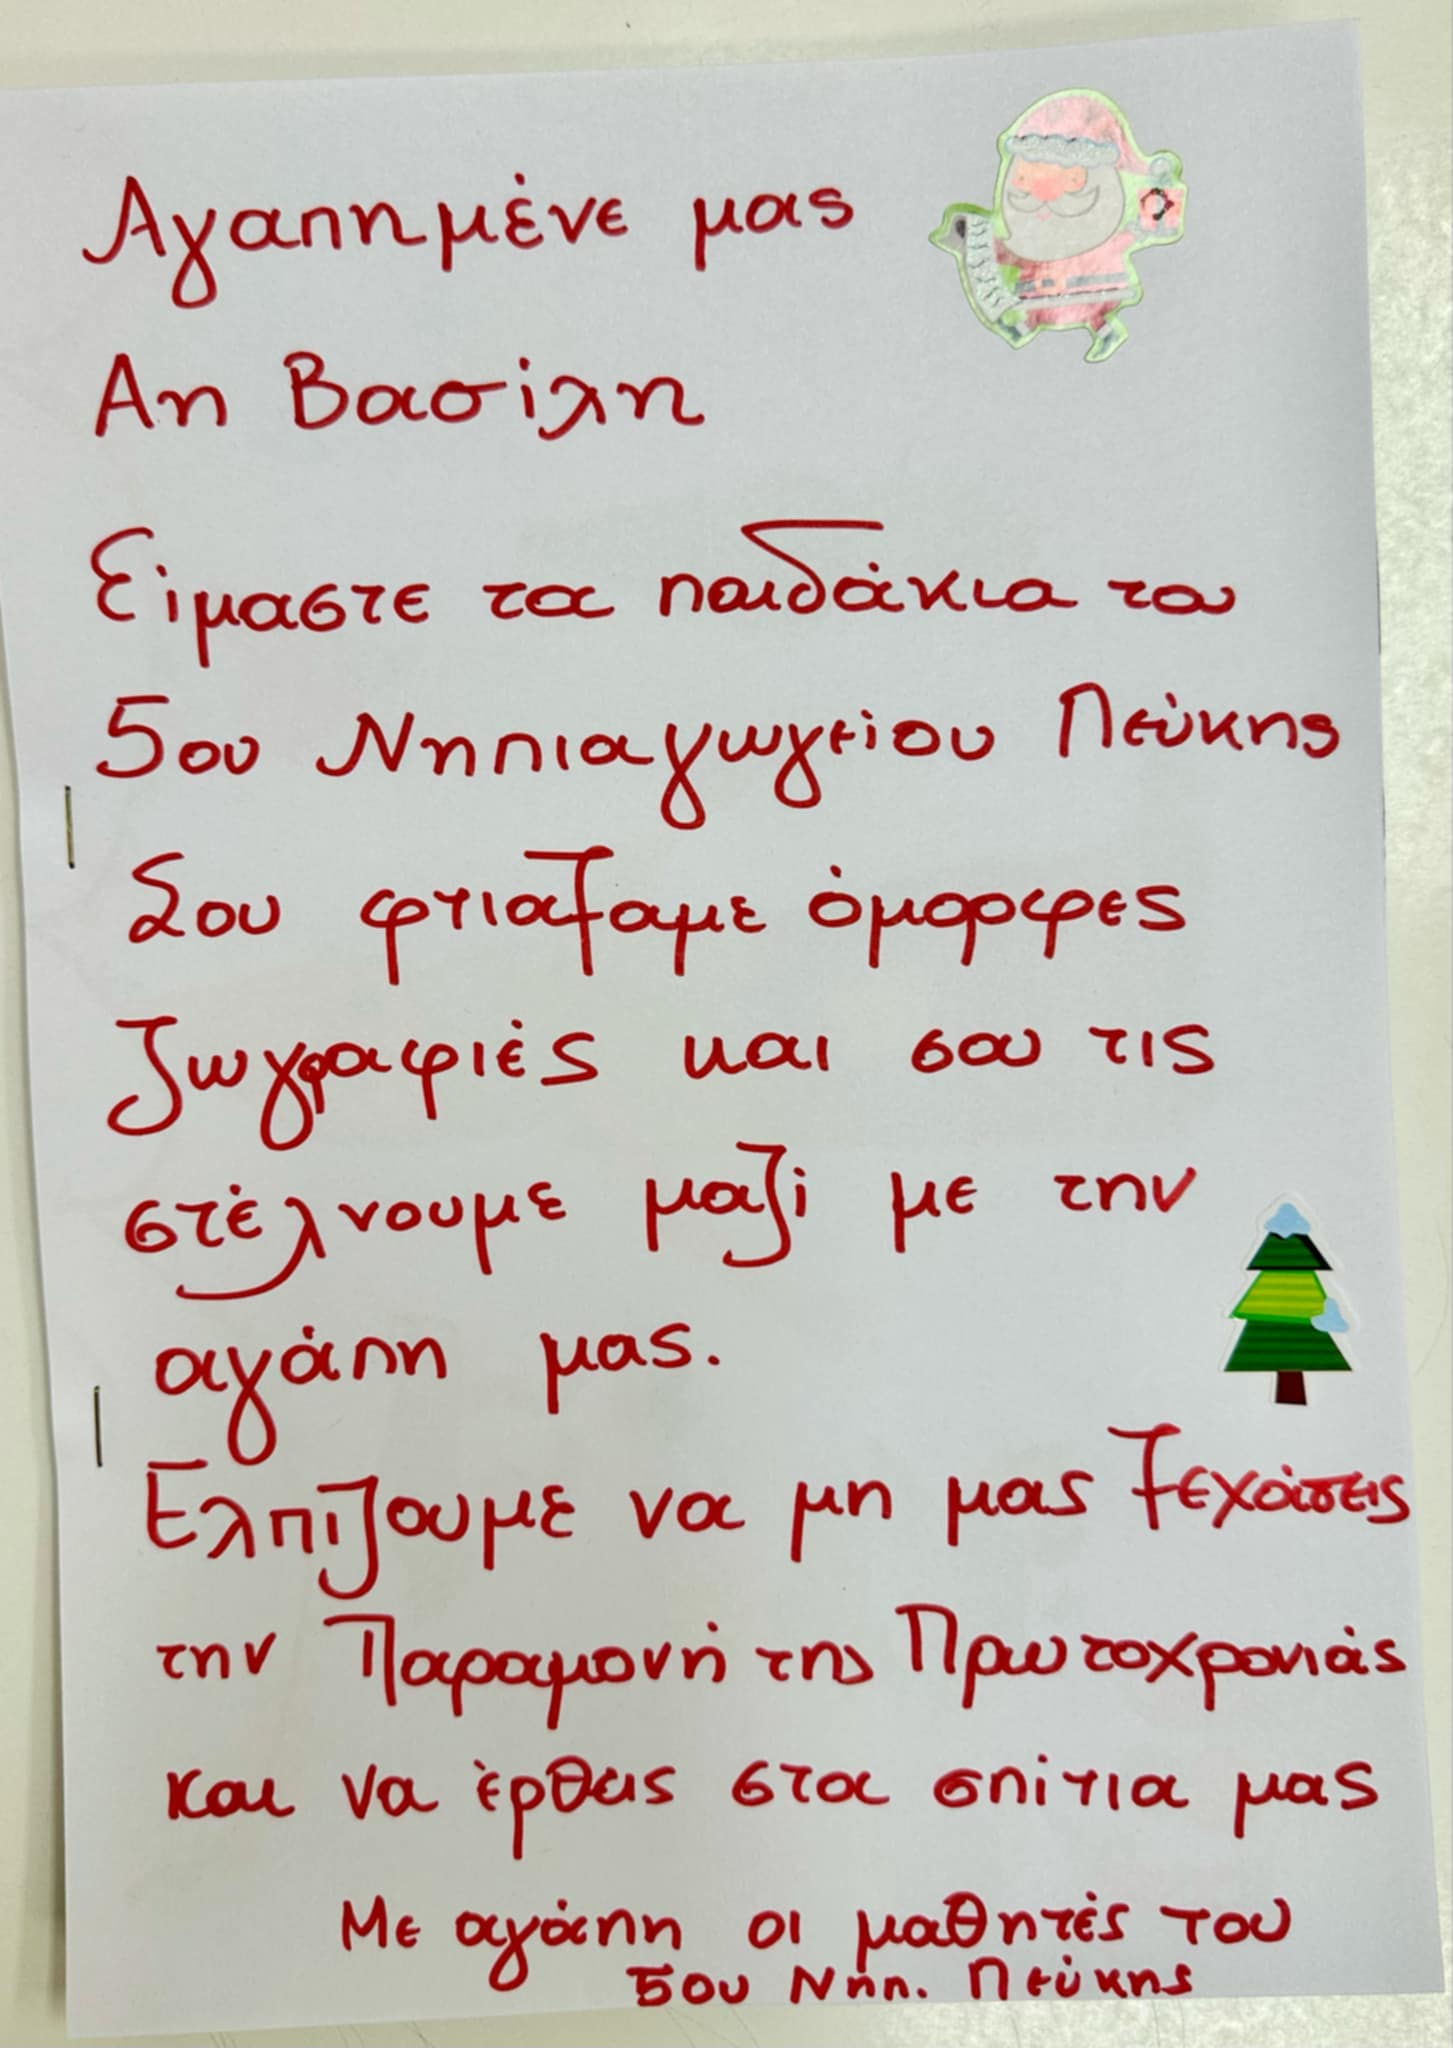 Αγαπημένε μας
Αη Βασίλη
Είμαστε τα παιδάκια του
5ου Νηπιαγωγείου Πεύκης
Σου φτιάξαμε όμορφες
ζωγραφιές και σου τις
στέλνουμε μαζί με την
αγάπη μας.
Ελπίζουμε να μη μας ξεχάσεις
την Παραμονή της Πρωτοχρονιάς
και να έρθεις στα σπίτια μας
Με αγάπη οι μαθητές του
5ου Νηπ. Πεύκης